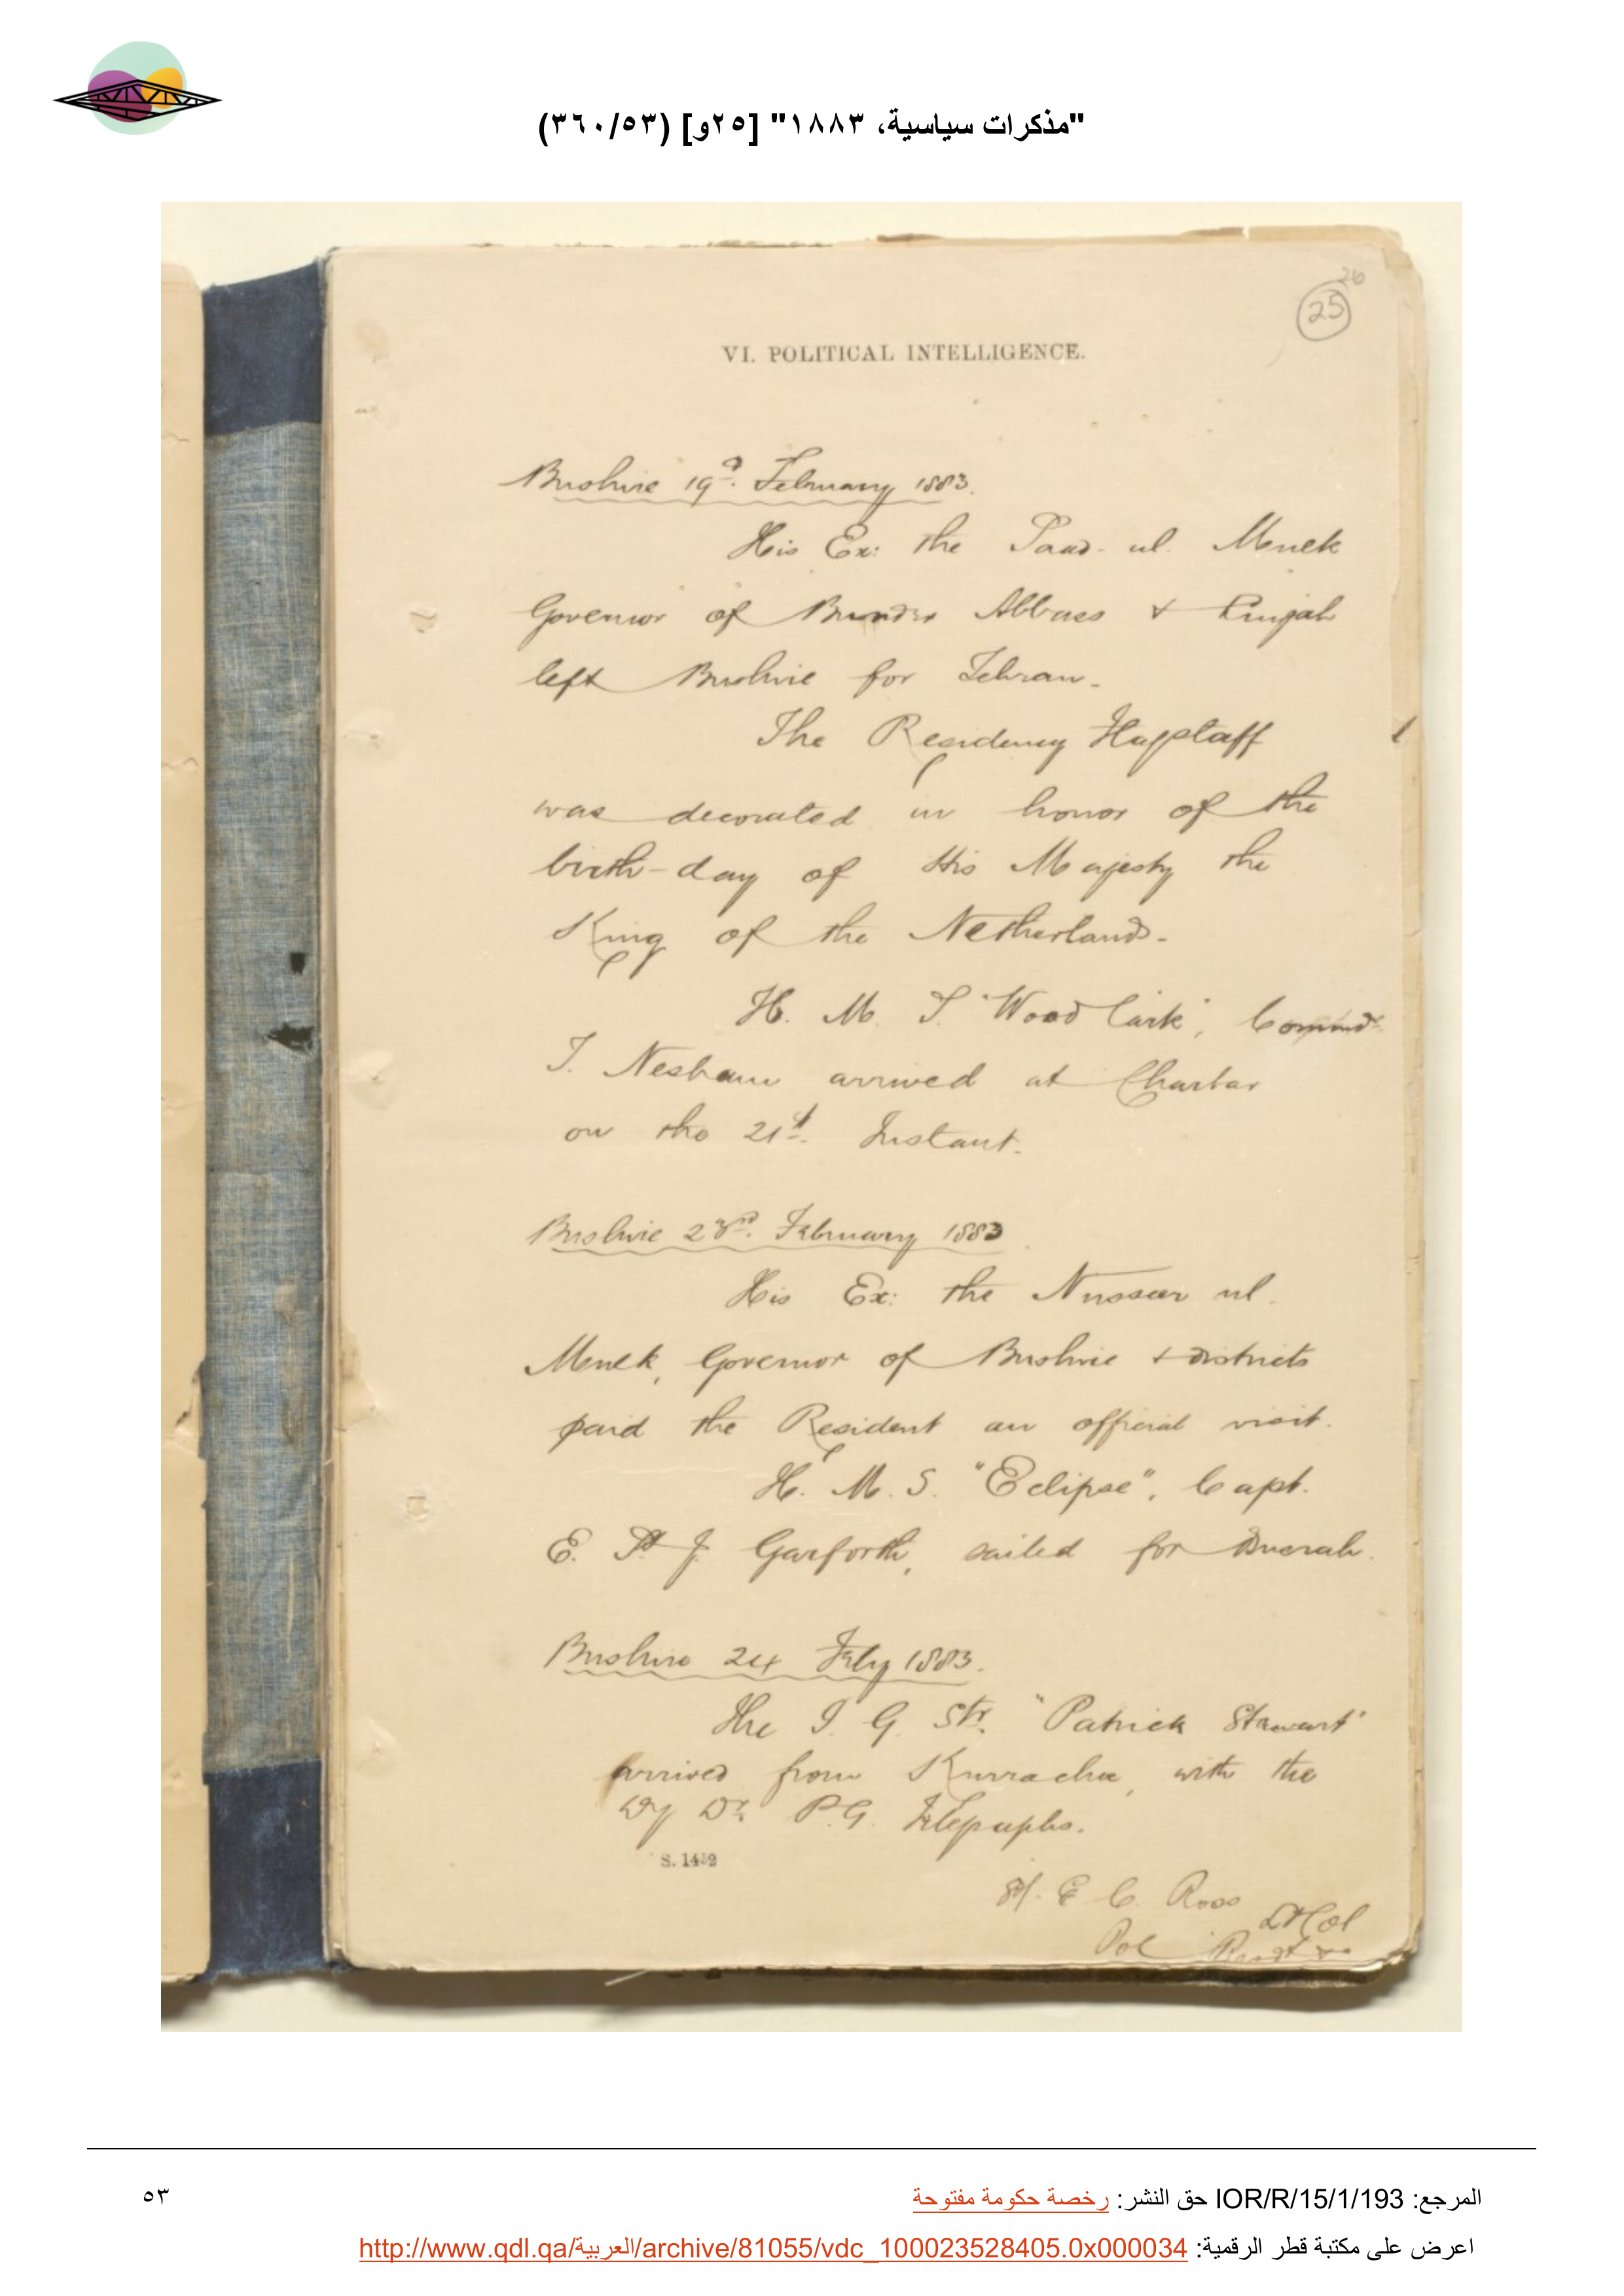 "مذكرات سياسية، ١٨٨٣" [٢٥و] (٣٦٠/٥٣)
26
25
VI. POLITICAL INTELLIGENCE.
Bushire 19th. February 1883.
His Ex: the Saad-ul-Mulk
Governor of Bunder Abbass & Lingah
left Bushire for Tehran-
The Residency Flagstaff
was decorated in honor of the
birth-day of His Majesty the
King of the Netherlands-
H. M. S. "Woodlark", Commdr
T. Nesham arrived at Charbar
on the 21st. Instant.
Bushire 23rd. February 1883
His Ex: the Nusseer ul
Mulk, Governor of Bushire & districts
paid the Resident an official visit.
H. M. S. "Eclipse", Capt.
E. St J. Garforth, sailed for
Bushire 24 Feby 1883.
The I. G. Str. "Patrick Stewart"
arrived from Kurrachee, with the
Dy Dr. P.G. Telegraphs.
S. 1452
Sd/. E C. Ross
Lt Col
Pol Resdt
المرجع: IOR/R/15/1/193 حق النشر: رخصة حكومة مفتوحة
٥٣
اعرض على مكتبة قطر الرقمية: http://www.qdl.qa/العربية/archive/81055/vdc_100023528405.0x000034